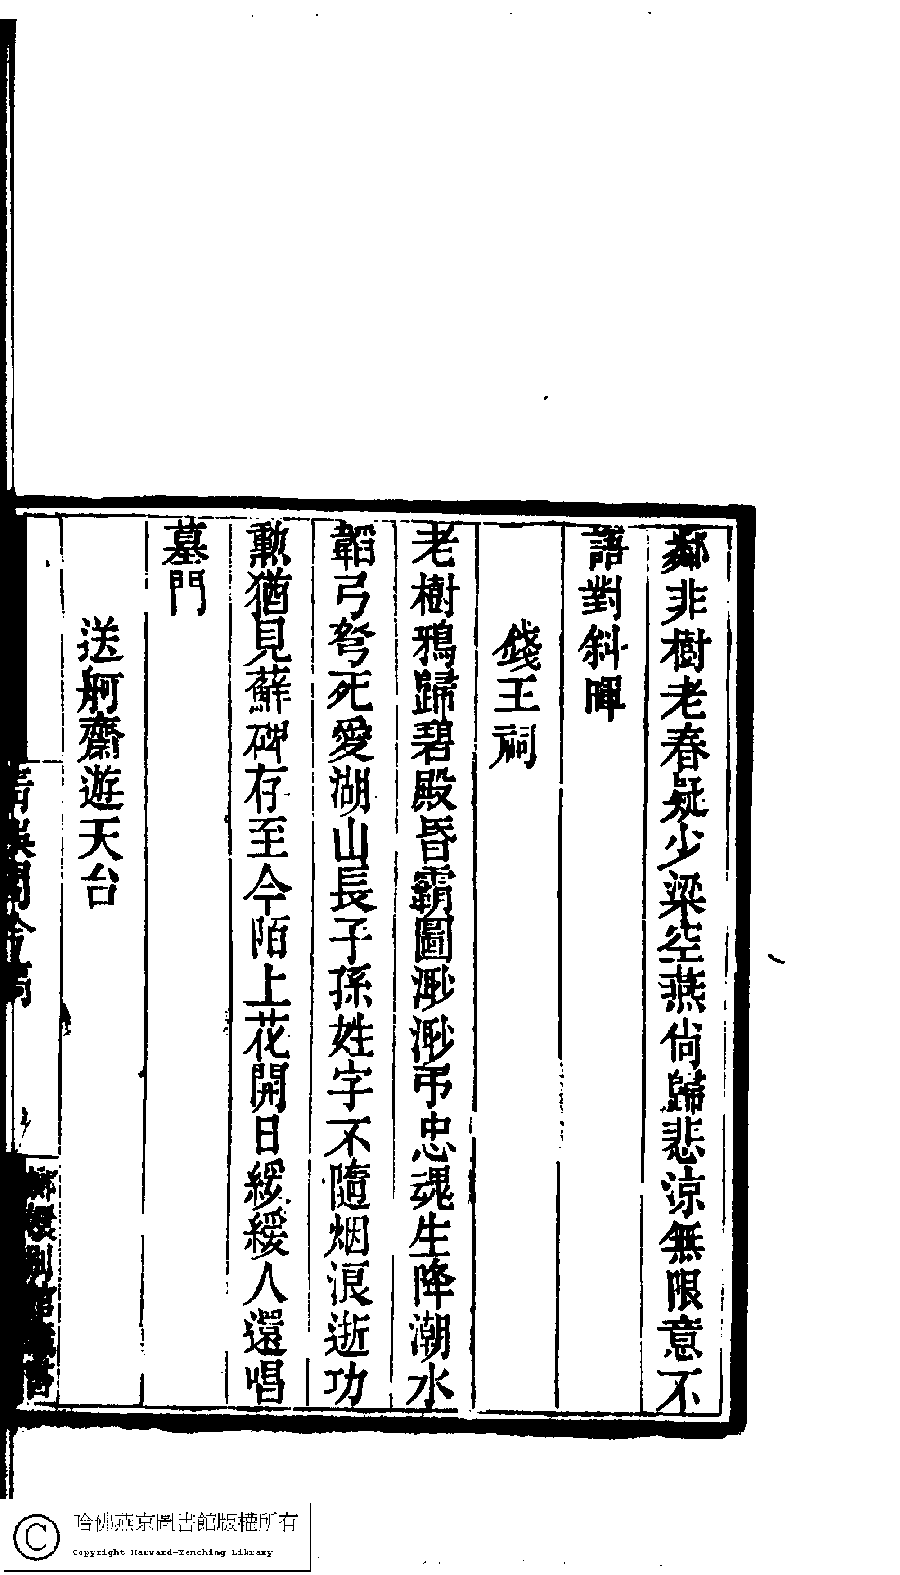 鄰非樹老春疑少梁空燕尙歸悲涼無限意不
語對斜暉
錢王祠
老樹鴉歸碧殿昏霸圖渺渺弔忠魂生降潮水
韜弓弩死愛湖山長子孫姓字不隨烟浪逝功
勲猶見蘇碑存至今陌上花開日緩緩人還唱
墓門
送舸齋遊天台
哈佛燕京圖書館版權所有
Copyright Harvard-Yenching Library